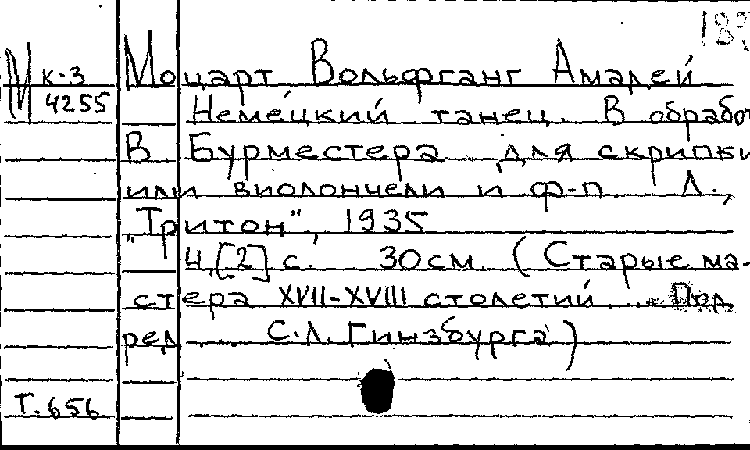 183
М к-3
4255
Моцарт Вольфганг Амадей
Немецкий танец. В обрабо
В Бурместера для скрипки
или виолончели и ф-п. Л.,
„Тритон", 1935
4,[2] с. 30 см. (Старые ма-
стера XVII-XVIII столетий ... Под
ред. ... С.Л. Гинзбурга)
Т. 656